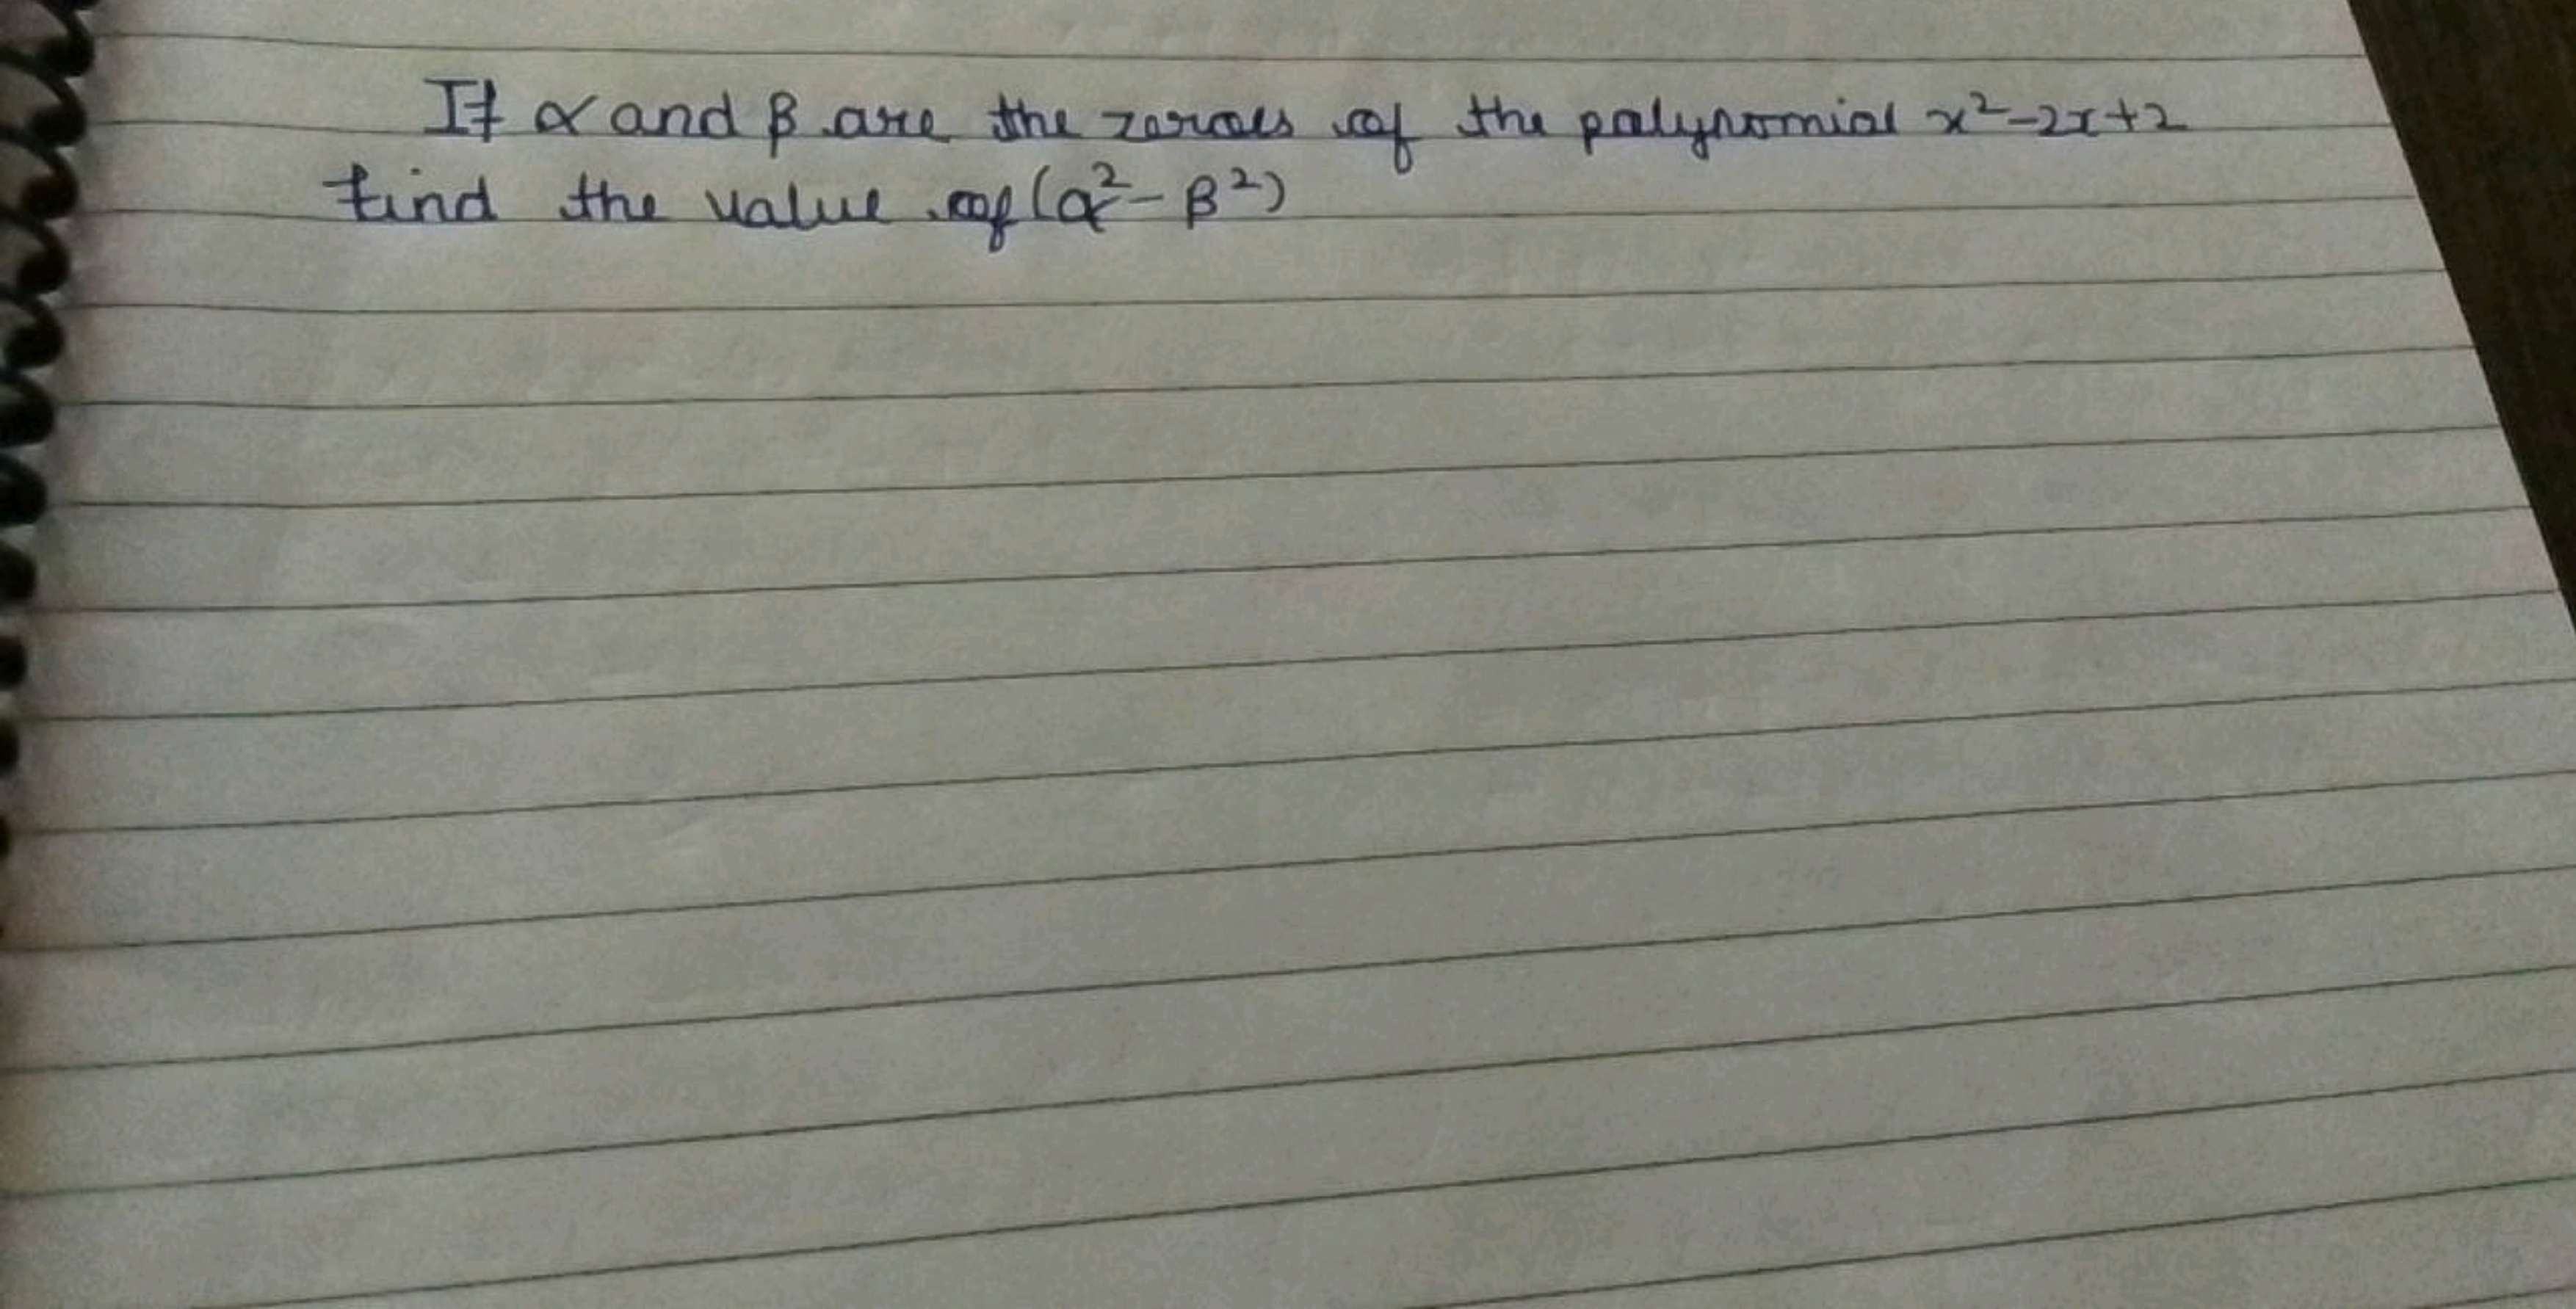 If α and β are the zeroes of the polynomial x²-2x+2
find the value of (α²-β²)